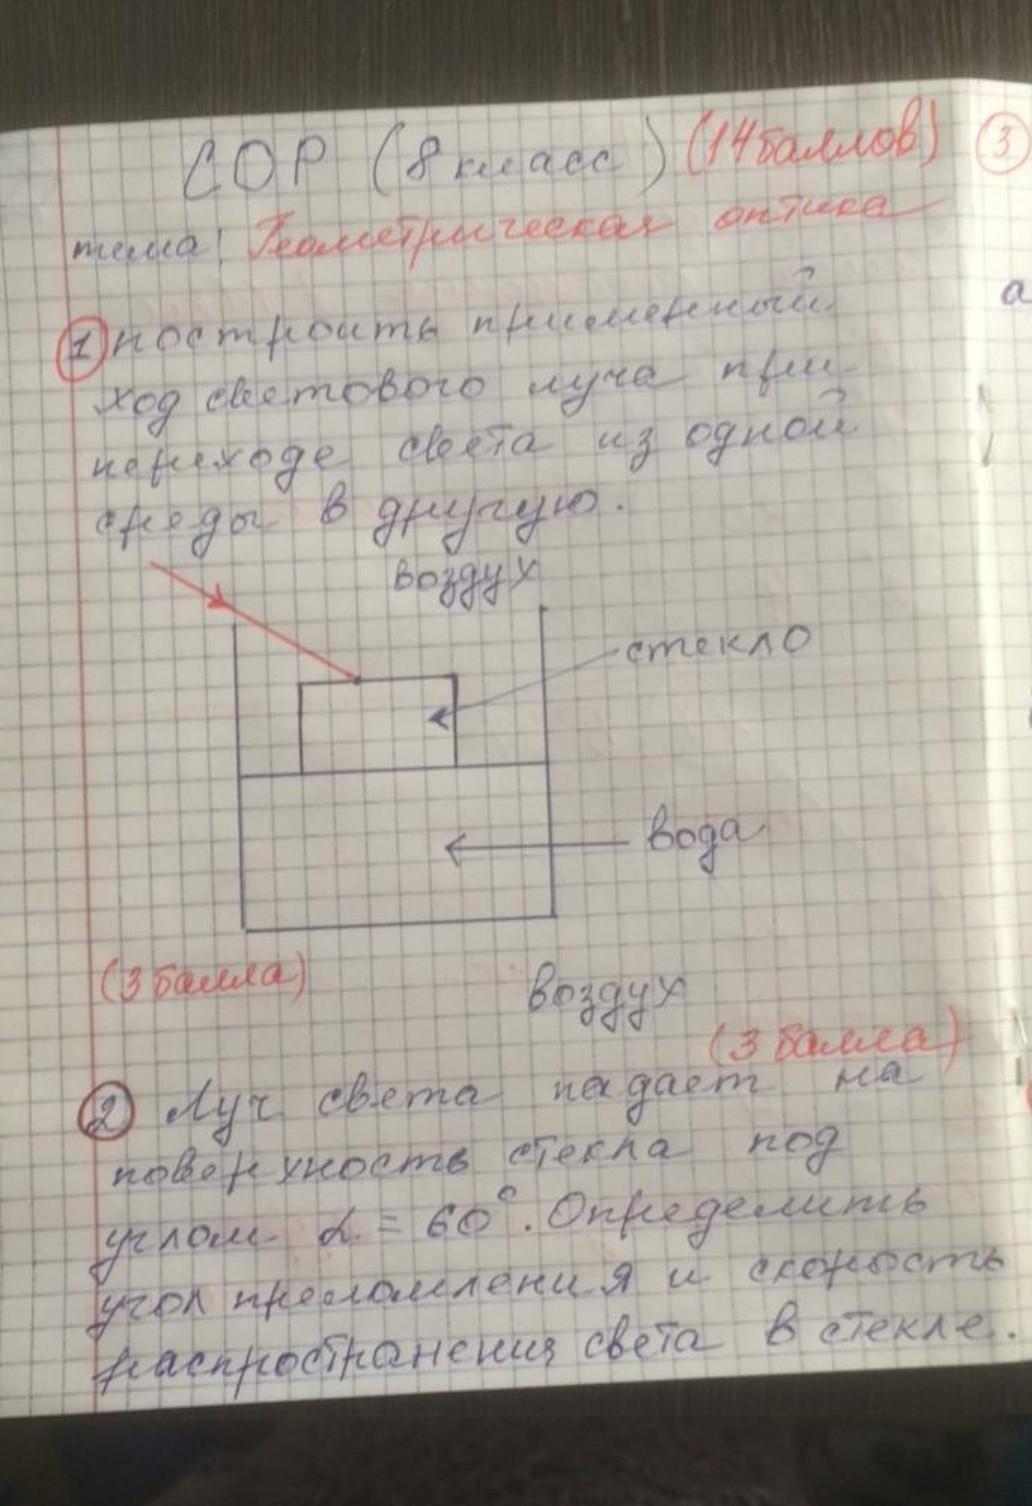 СОР (8 класс) (14 баллов) 3
тема: Геометрическая оптика
а
1 построить примерный
ход светового луча при
переходе света из одной
среды в другую.
воздух
стекло
вода
(3 балла)
воздух
(3 балла)
2 Луч света падает на
поверхность стекла под
углом α = 60°. Определить
угол преломления и скорость
распространения света в стекле.